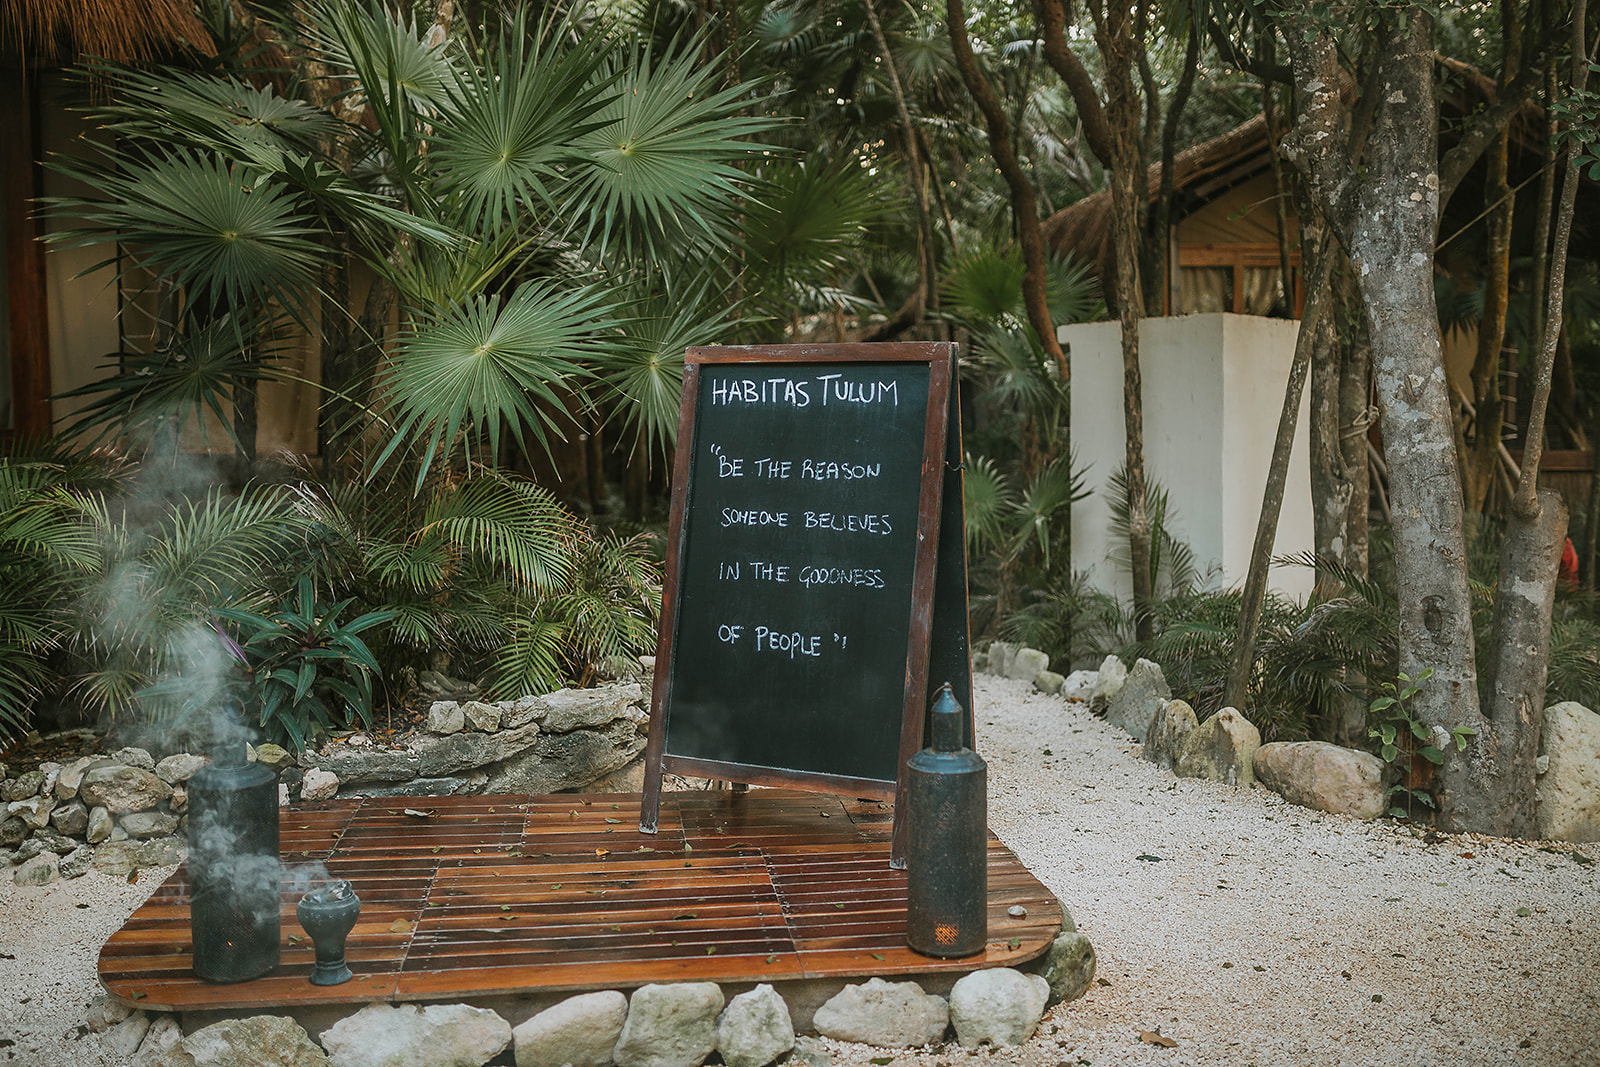 HABITAS TULUM
"BE THE REASON
SOMEONE BELIEVES
IN THE GOODNESS
OF PEOPLE"